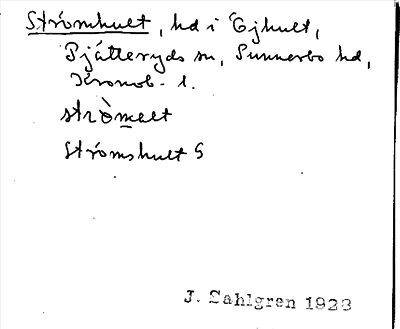 Strömhult, hd i Ejhult,
Pjätteryds sn, Sunnerbo hd,
Kronob. l.
stròmelt
Strömshult G
J. Sahlgren 1928